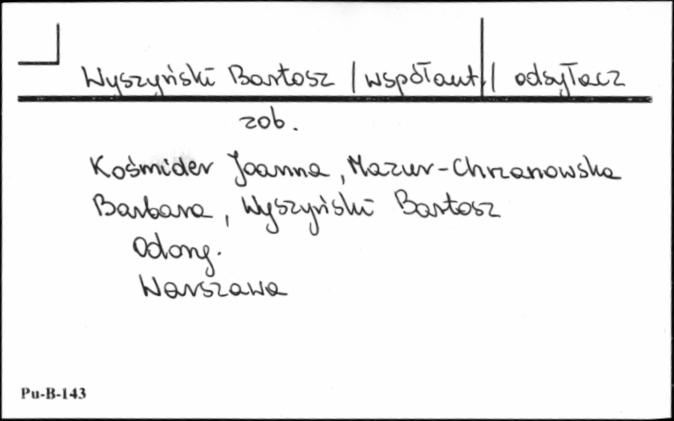 Wyszyński Bartosz /współaut./ odsyłacz
zob.
Kośmider Joanna, Mazur-Chrzanowska
Barbara, Wyszyński Bartosz
Odong.
Warszawa
Pu-B-143